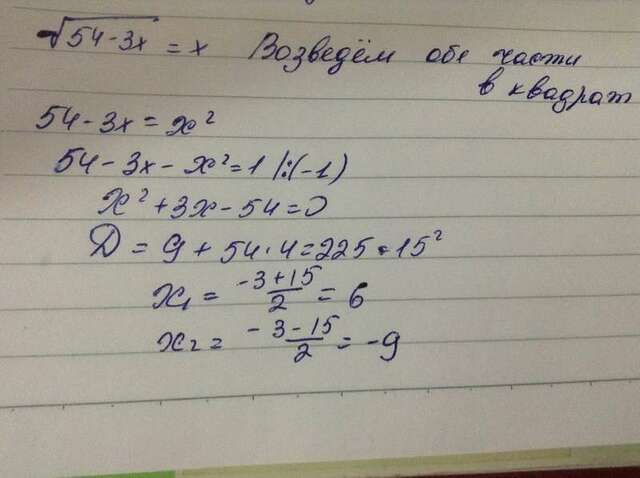 √54-3x = x Возведём обе части
в квадрат
54-3x = x²
54-3x-x²=1 |:(-1)
x²+3x-54=0
Д = 9+54·4=225=15²
x₁ = -3+15/2 = 6
x₂ = -3-15/2 = -9